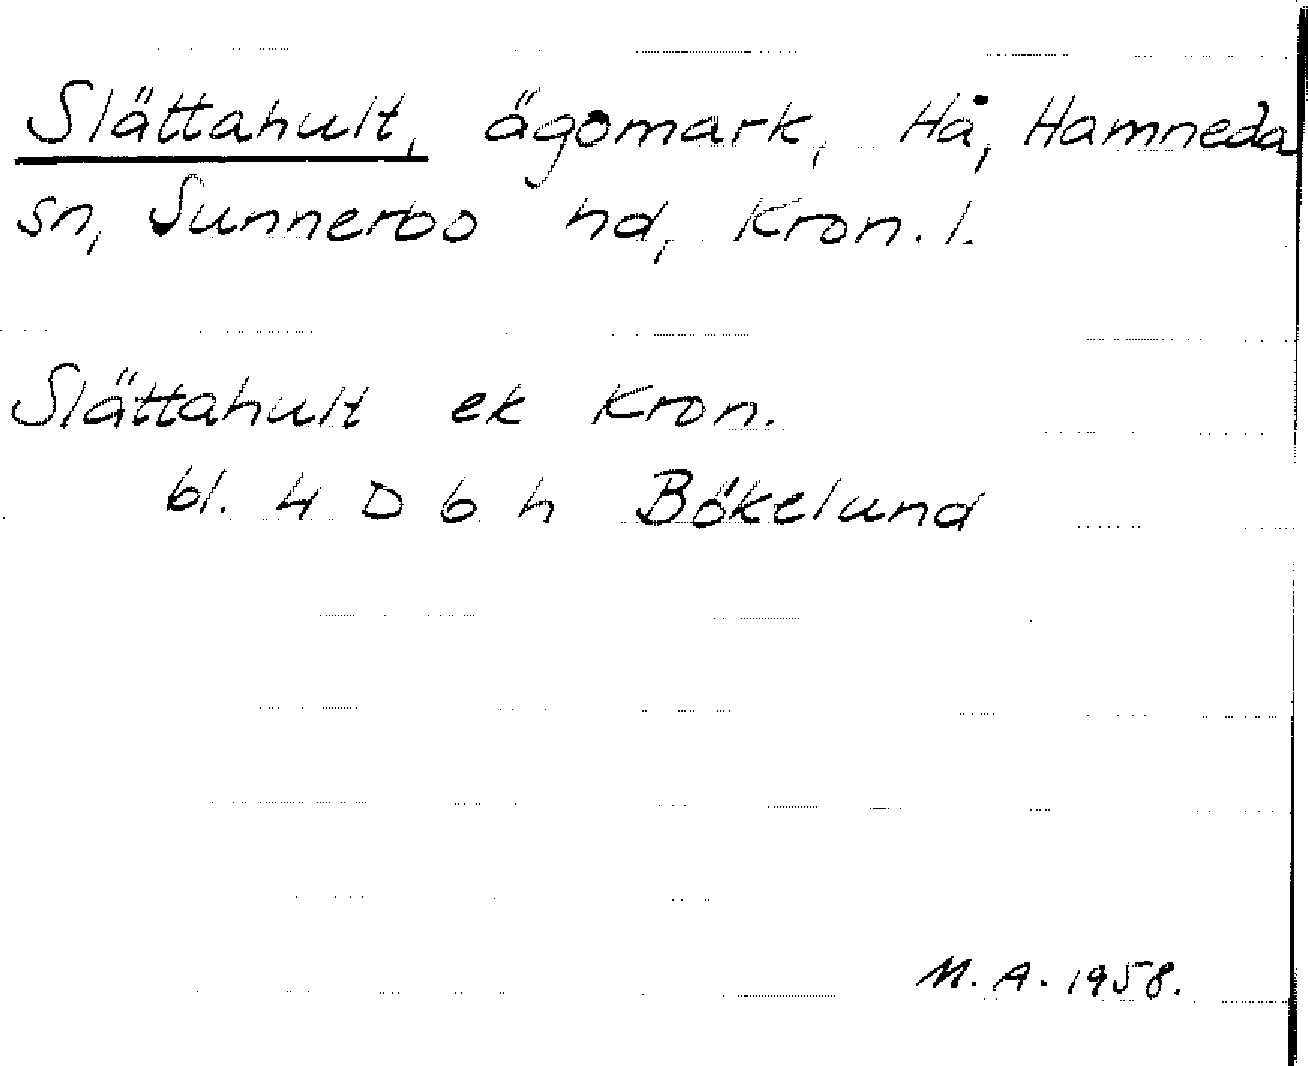 Slättahult, ägomark, Hå, Hamneda
sn, Sunnerbo hd, Kron. l.
Slättahult ek Kron.
bl. 4 D 6 h Bökelund
M. A. 1958.